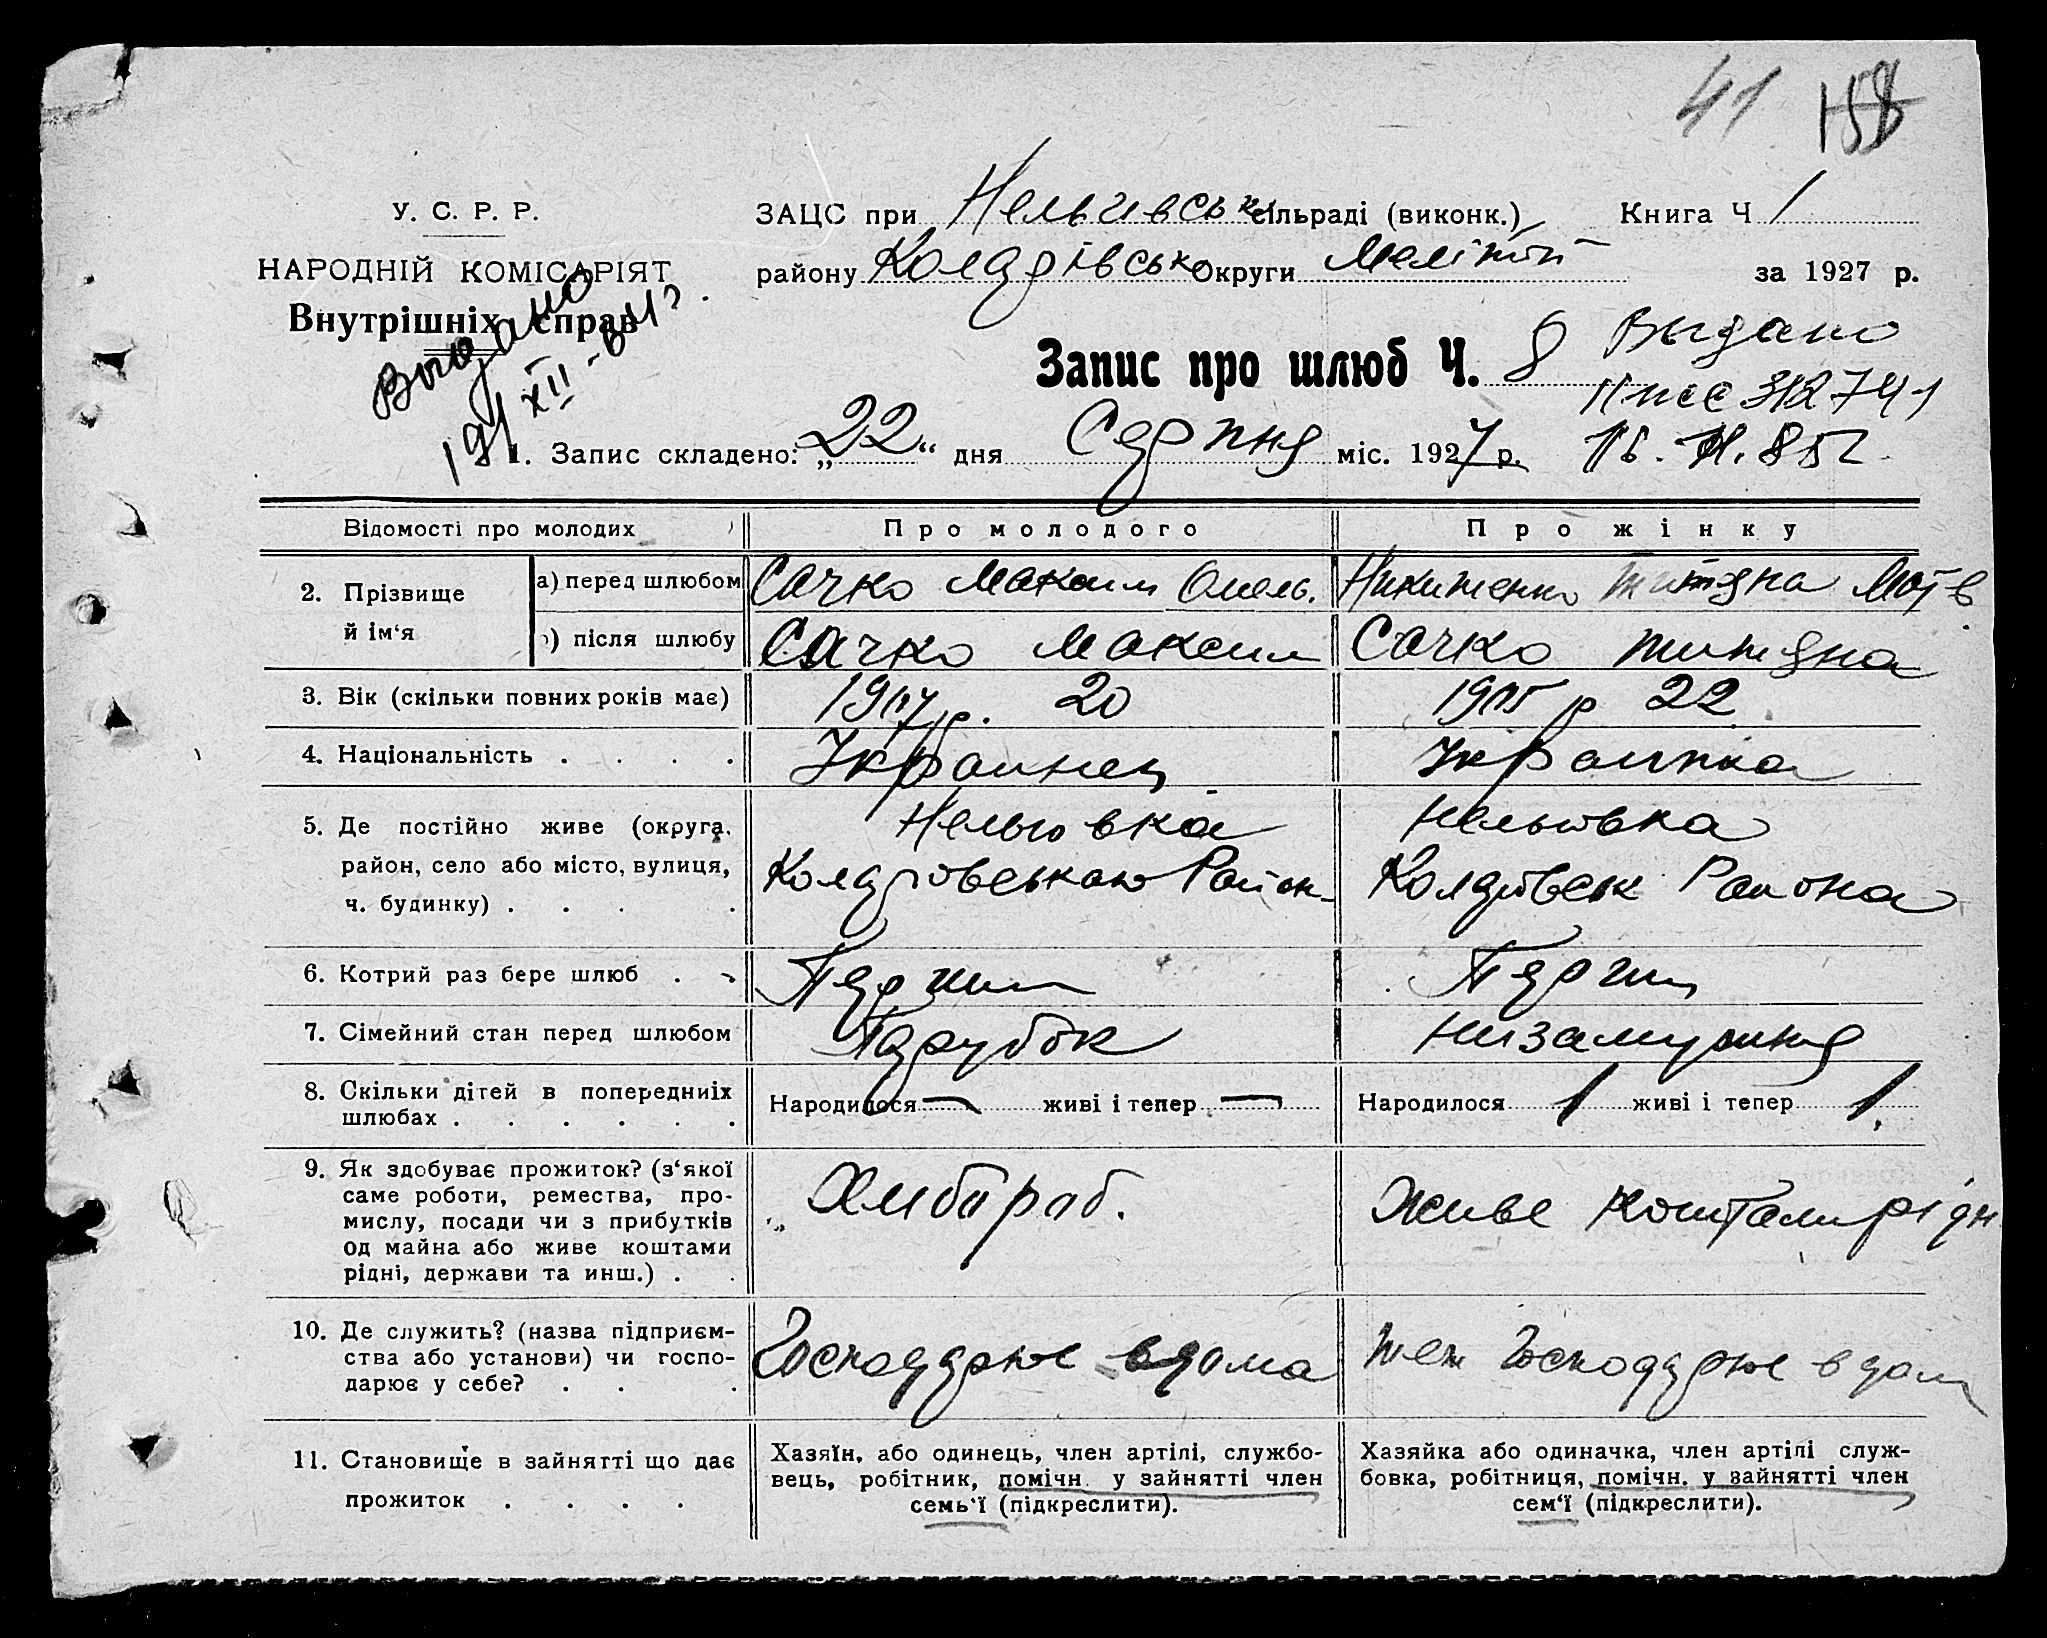 41 158
У. С. Р. Р.
НАРОДНІЙ КОМІСАРІЯТ
Внутрішніх справ
Выдано
19/XII-64г.
ЗАЦС при Нельгивськ сільраді (виконк.) Книга Ч 1
району Коларівськ Округи Меліто́п за 1927 р.
Запис про шлюб Ч. 8
Выдано
1. Запис складено: „22“ дня Серпня міс. 1927 р.
Відомості про молодих Про молодого Про жінку
2. Прізвище й ім‘я
а) перед шлюбом Сачко Максим Омель. Никитенко Титяна Матв
б) після шлюбу Сачко Максим Сачко Титяна
3. Вік (скільки повних років має) 1907 р. 20 1905 р 22
4. Національність . . . . Украинец Украинка
5. Де постійно живе (округа, Нельговка Нельговка
район, село або місто, вулиця, Коларовського Район Коларівськ Района
ч. будинку) . . . .
6. Котрий раз бере шлюб . . Перший Перший
7. Сімейний стан перед шлюбом Парубок Незамужня
8. Скільки дітей в попередниіх Народилося — живі і тепер — Народилося 1 живі і тепер 1.
шлюбах . . . . . .
9. Як здобуває прожиток? (з‘якої
саме роботи, ремества, про-
мислу, посади чи з прибутків
од майна або живе коштами
рідні, держави та инш.) . .
Хлибороб. Живе коштами рідн
10. Де служить? (назва підприєм-
ства або установи) чи госпо-
дарює у себе? . . .
Господарює вдома теж Господарює вдом
11. Становище в зайнятті що дає
прожиток . . . .
Хазяїн, або одинець, член артілі, службо-
вець, робітник, помічн. у зайнятті член
семь‘ї (підкреслити).
Хазяйка або одиначка, член артілі служ-
бовка, робітниця, помічн. у зайнятті член
сем‘ї (підкреслити).